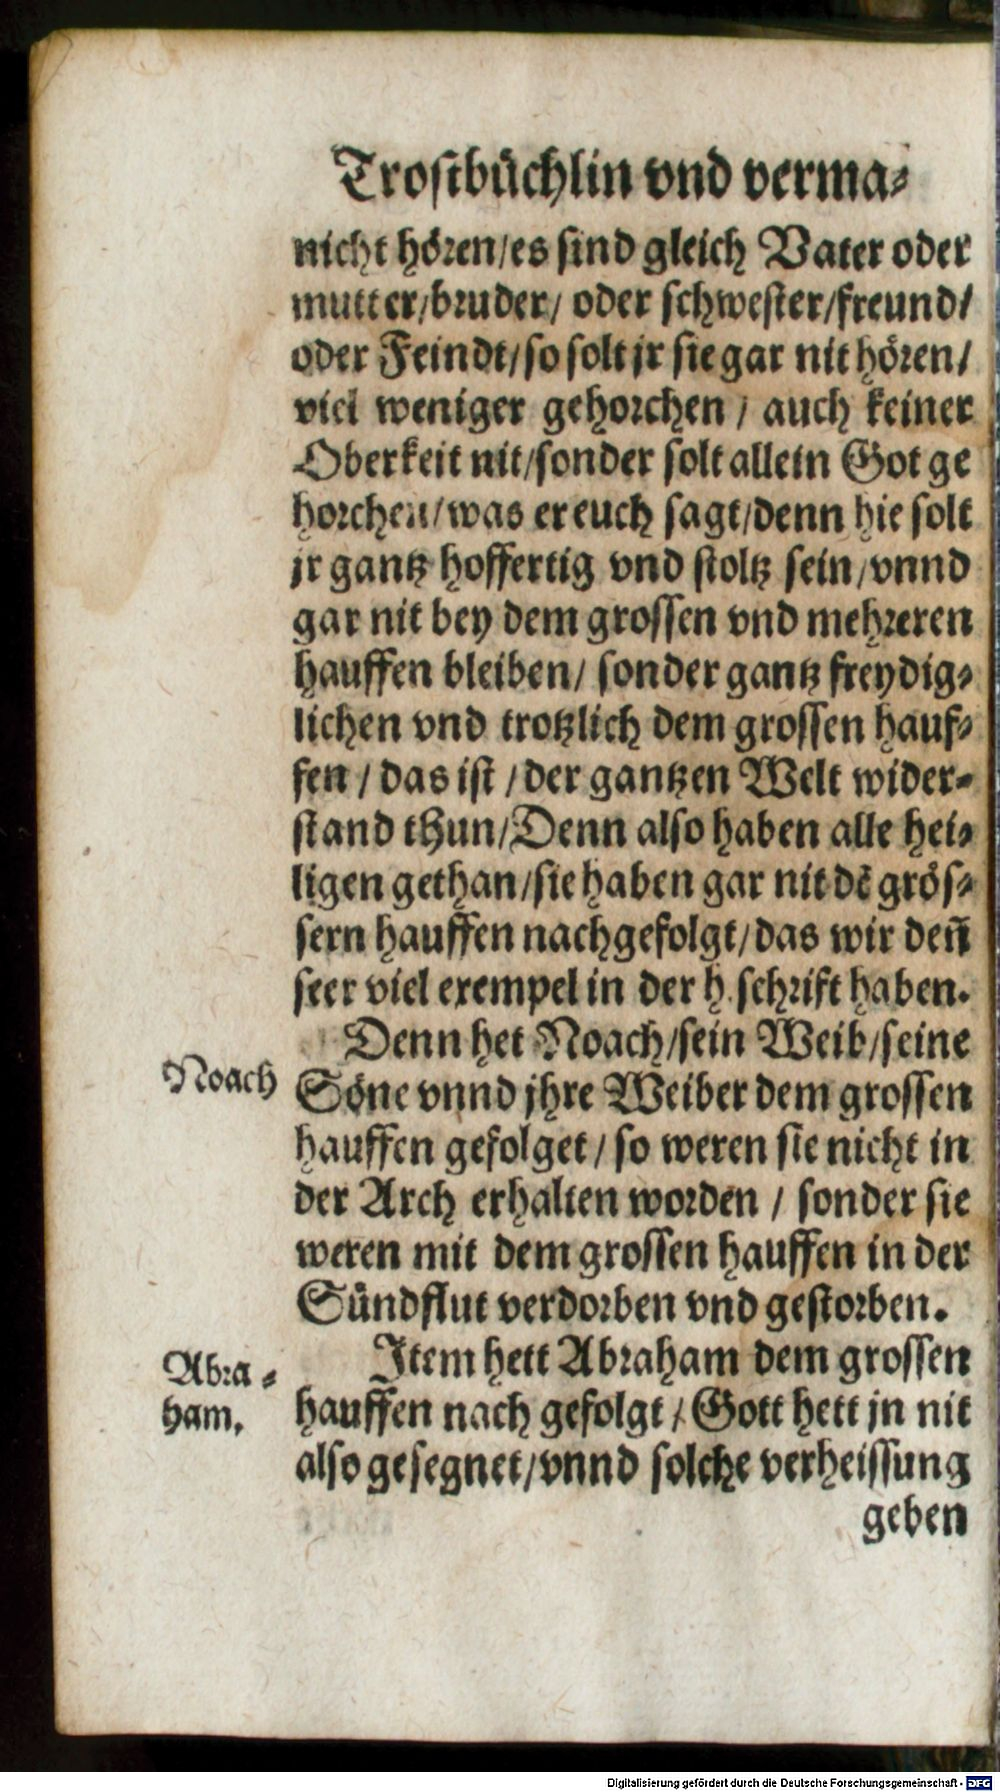 Trostbüchlin vnd verma-
nicht hören/es sind gleich Vater oder
mutter/bruder/ oder schwester/freund/
oder Feindt/so solt jr sie gar nit hören/
viel weniger gehorchen / auch keiner
Oberkeit nit/sonder solt allein Got ge
horchen/was er euch sagt/denn hie solt
jr gantz hoffertig vnd stoltz sein/vnnd
gar nit bey dem grossen vnd mehreren
hauffen bleiben/ sonder gantz freydig-
lichen vnd trotzlich dem grossen hauf-
fen / das ist / der gantzen Welt wider-
stand thun/Denn also haben alle hei-
ligen gethan/sie haben gar nit dē grös-
sern hauffen nachgefolgt/das wir deñ
seer viel exempel in der h. schrift haben.
Denn het Noach/sein Weib/seine
Noach
Söne vnnd jhre Weiber dem grossen
hauffen gefolget / so weren sie nicht in
der Arch erhalten worden / sonder sie
weren mit dem grossen hauffen in der
Sündflut verdorben vnd gestorben.
Item hett Abraham dem grossen
Abra-
ham.
hauffen nach gefolgt / Gott hett jn nit
also gesegnet/vnnd solche verheissung
geben
Digitalisierung gefördert durch die Deutsche Forschungsgemeinschaft - DFG